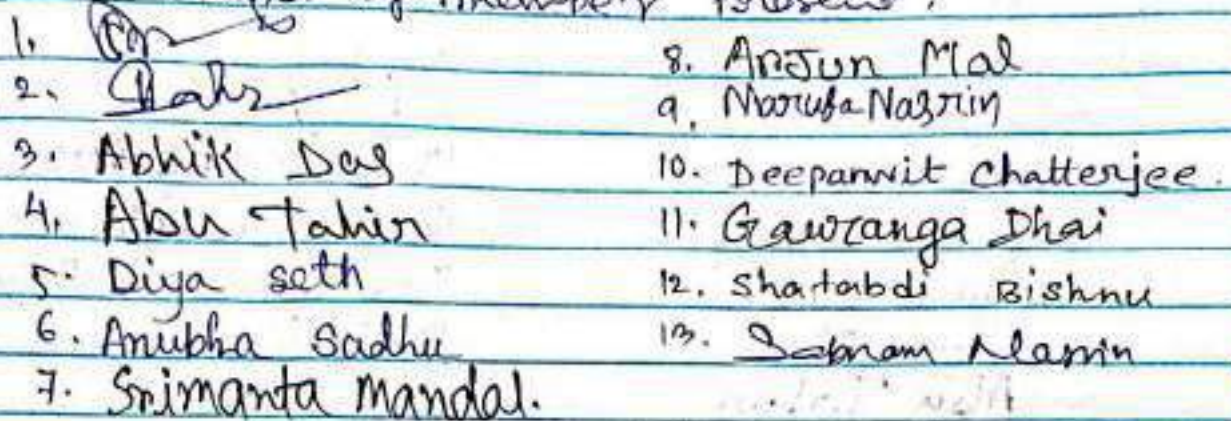 of members present.
1.
2.
3. Abhik Das
4. Abu Tahir
5. Diya seth
6. Anubha Sadhu
7. Srimanta Mandal.
8. Arjun Mal
9. Marufa Nazrin
10. Deepanwit Chatterjee.
11. Gawranga Dhai
12. Shatabdi Bishnu
13. Sabnam